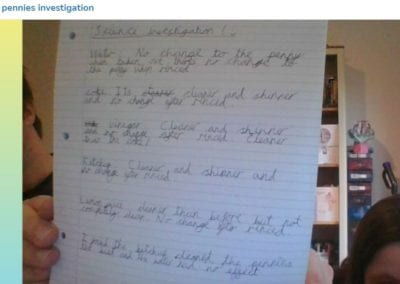 pennies investigation
Science investigation!
Water: No change to the penny
when taken out and no change to
the penny when rinced
coke It is cleaner and shinner
and no change after rinced
vinegar Cleaner and shinner
and no change after rinced Cleaner
than the coke!
Ketchup Cleaner and shinner and
no change after rinced
Lemon juice cleaner than before but not
completely clean. No change after rinced
I found the ketchup cleaned the pennies
the best and the water had no effect